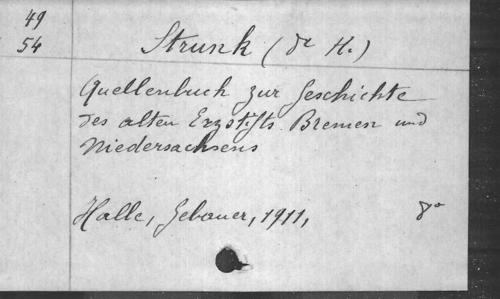 49
54
Strunk (Dr H.)
Quellenbuch zur Geschichte
des alten Erzstifts Bremen und
Niedersachsens
Halle, Gebauer, 1911, 8°